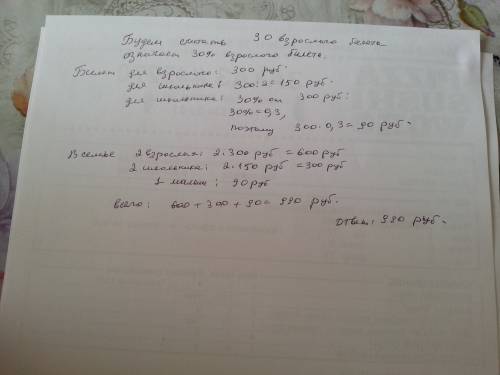 Будем считать 30 взрослого билета
означает 30% взрослого билета.
Билет для взрослого: 300 руб.
для школьника: 300:2=150 руб.
для школьника: 30% от 300 руб:
30%=0,3,
поэтому 300·0,3=90 руб.
В семье 2 взрослых: 2·300 руб=600 руб
2 школьника: 2·150 руб=300 руб
1 малыш: 90 руб
всего: 600+300+90=990 руб.
Ответ: 990 руб.